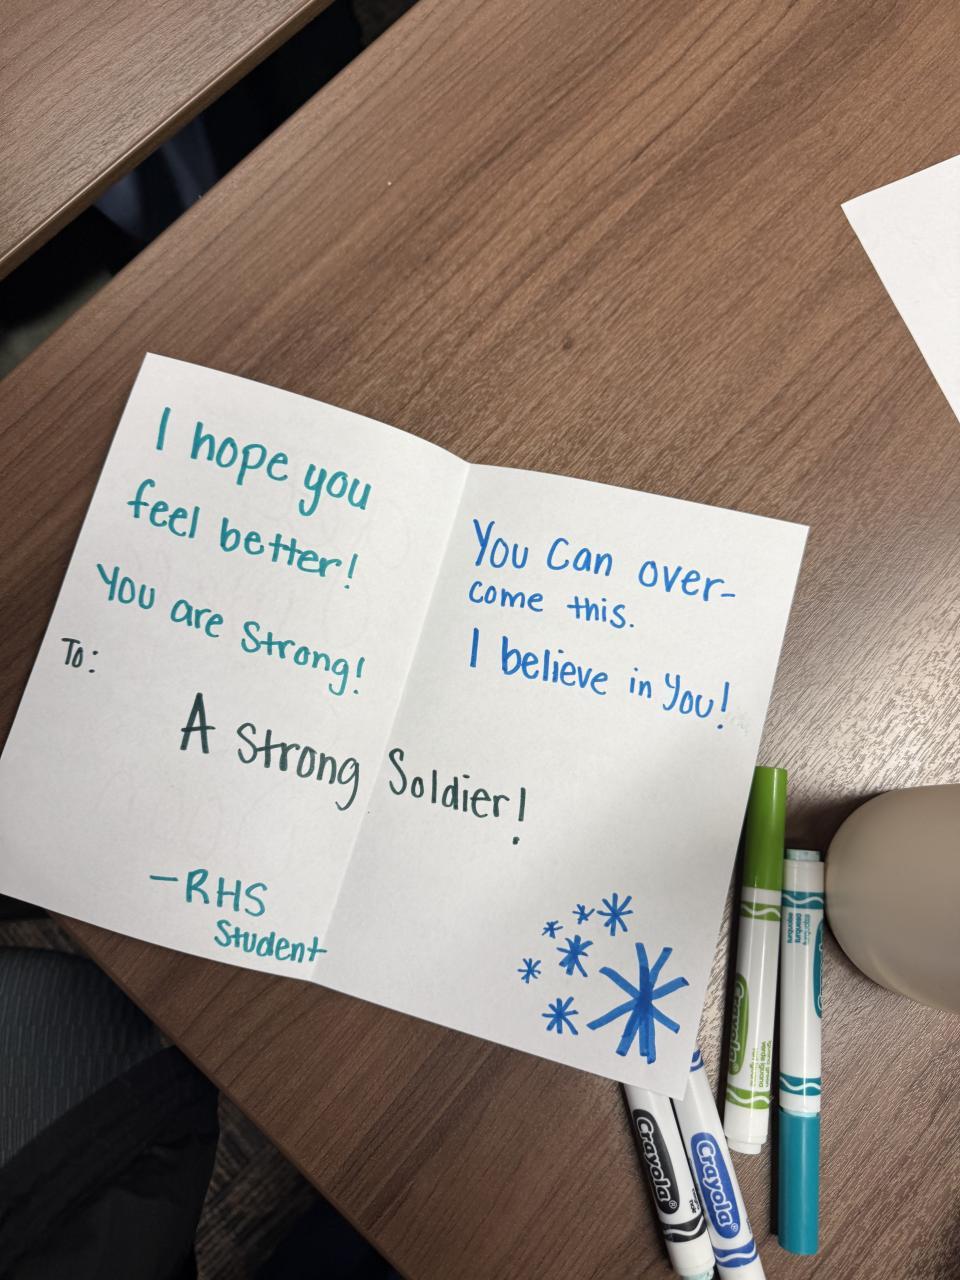 I hope you
feel better!
You are Strong!
To:
A Strong Soldier!
-RHS
Student
You Can over-
come this.
I believe in You!
Crayola
Crayola
Crayola